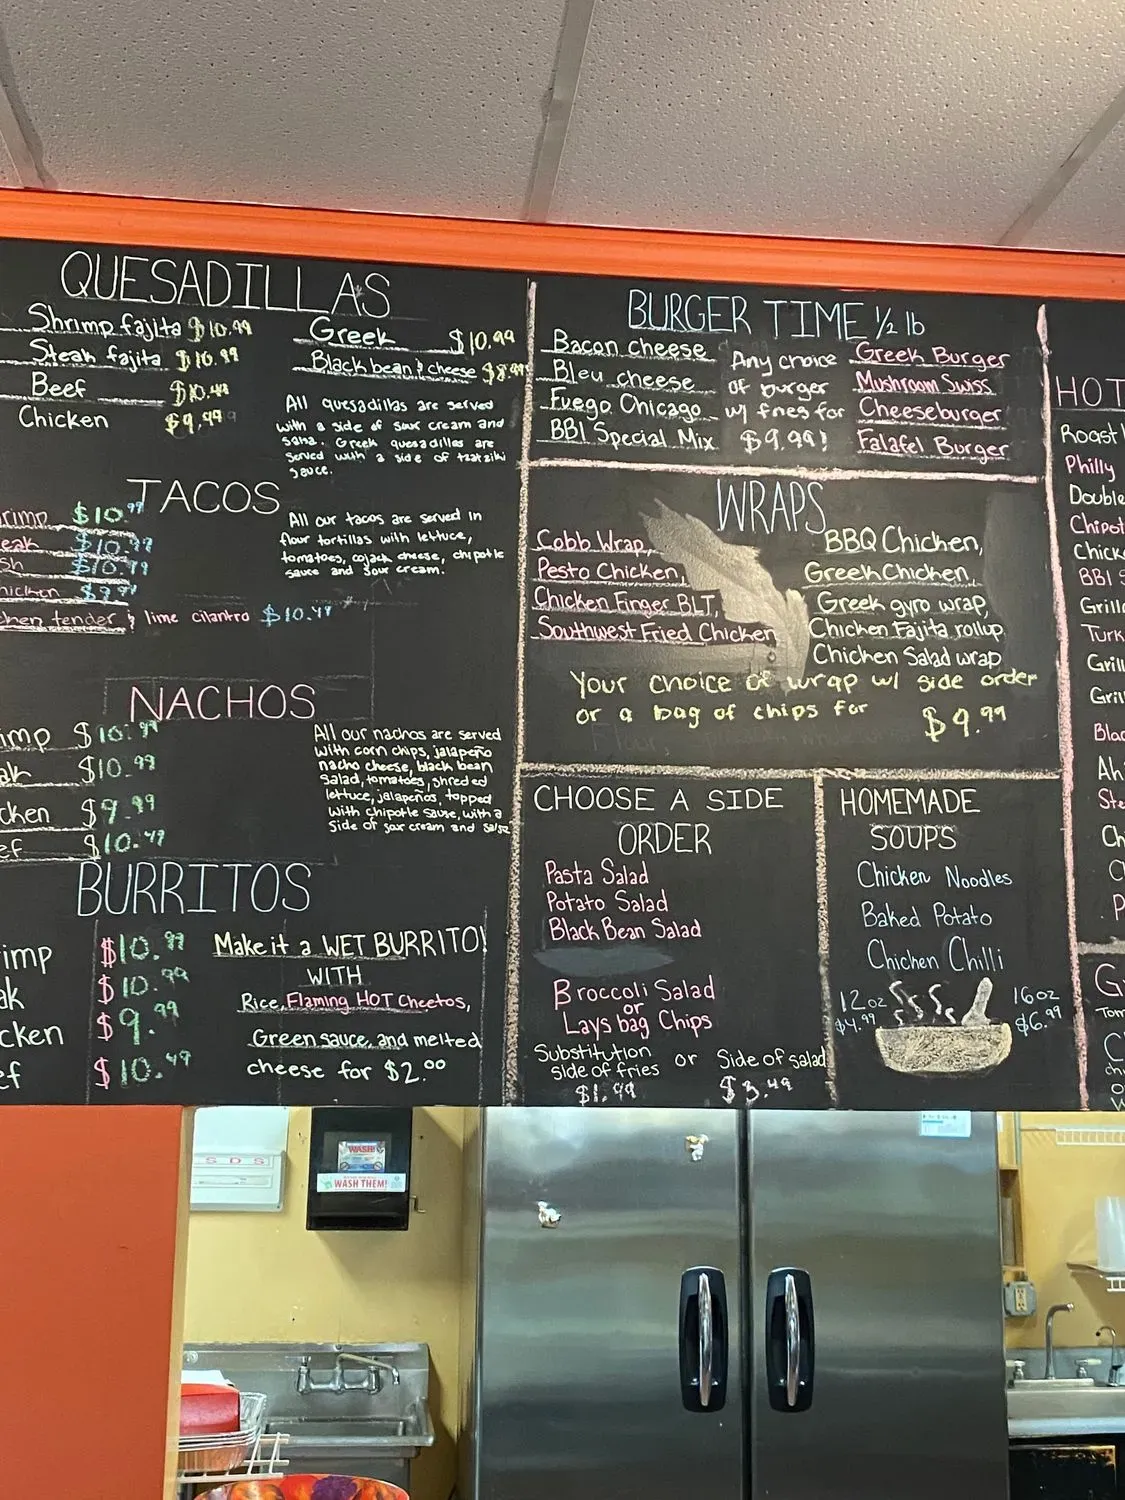 QUESADILLAS
Shrimp fajita $10.99
Steak fajita $10.99
Beef $10.49
Chicken $9.99
Greek $10.99
Black bean & cheese $8.99
All quesadillas are served
with a side of sour cream and
salsa. Greek quesadillas are
served with a side of tzatziki
sauce.
TACOS
$10.99
$10.99
$10.99
$9.99
tender & lime cilantro $10.49
All our tacos are served in
flour tortillas with lettuce,
tomatoes, cojack cheese, chipotle
sauce and sour cream.
NACHOS
$10.99
$10.99
$9.99
$10.49
All our nachos are served
with corn chips, jalapeño
nacho cheese, black bean
salad, tomatoes, shreded
lettuce, jalapeños, topped
with chipotle sause, with a
side of sour cream and salsa
BURRITOS
$10.99
$10.99
$9.99
$10.49
Make it a WET BURRITO!
WITH
Rice, Flaming HOT Cheetos,
Green sauce, and melted
cheese for $2.00
BURGER TIME 1/2 lb
Bacon cheese
Bleu cheese
Fuego Chicago
BBI Special Mix
Any choice
of burger
w/ fries for
$9.99!
Greek Burger
Mushroom Swiss
Cheeseburger
Falafel Burger
WRAPS
Cobb Wrap,
Pesto Chicken,
Chicken Finger BLT,
Southwest Fried Chicken
BBQ Chicken,
Greek Chicken
Greek gyro wrap,
Chicken Fajita rollup
Chicken Salad wrap
Your choice of wrap w/ side order
or a bag of chips for $9.99
CHOOSE A SIDE
ORDER
Pasta Salad
Potato Salad
Black Bean Salad
Broccoli Salad
or
Lays bag Chips
Substitution
side of fries
$1.99
or
Side of salad
$3.49
HOMEMADE
SOUPS
Chicken Noodles
Baked Potato
Chicken Chilli
12oz
$4.99
16oz
$6.99
HOT
Roast
Philly
Double
BBI
SDS
WASH!
WASH THEM!